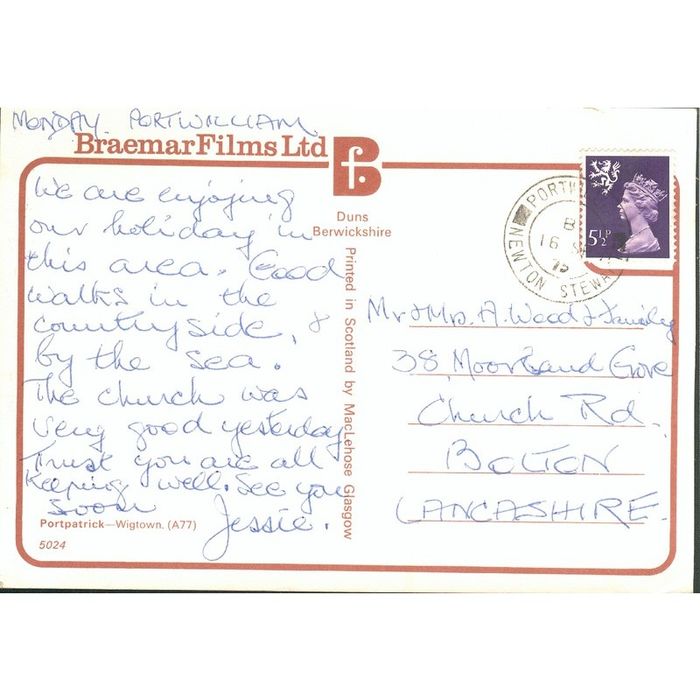 MONDAY. PORTWILLIAM
Braemar Films Ltd
f.B
Duns
Berwickshire
We are enjoying
our holiday in
this area. Good
walks in the
countryside, &
by the sea.
The church was
very good yesterday
Trust you are all
keeping well. See you
soon
Jessie.
Portpatrick—Wigtown. (A77)
5024
Printed in Scotland by MacLehose Glasgow
5½P
NEWTON STEW
16
Mr & Mrs. A. Wood & Family
38, Moorland Grove
Church Rd.
BOLTON
LANCASHIRE.